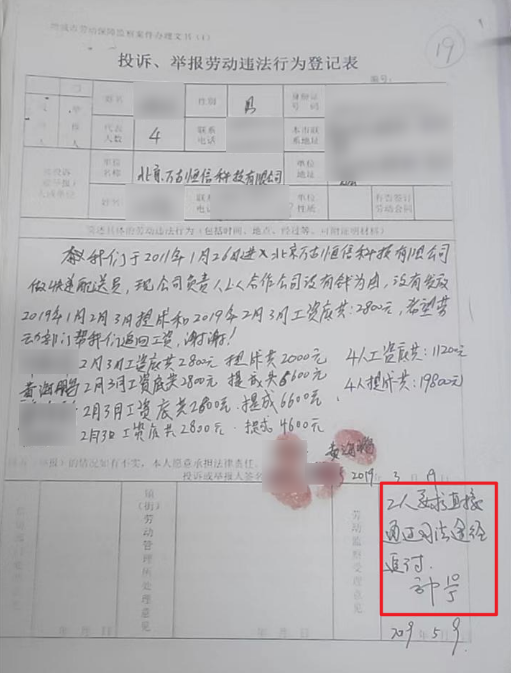 市劳动保障监察案件办理文书（1）
19
投诉、举报劳动违法行为登记表
编号：
姓名
性别
男
身份证号码
代表人数
4
联系电话
本市联系地址
单位名称
北京万古恒信科技有限公司
单位地址
姓名
联系电话
单位性质
有否签订劳动合同
诉具体的劳动违法行为（包括时间、地点、经过等，可附证明材料）
我们于2011年1月26日进入北京万古恒信科技有限公司
做快递配送员，现公司负责人以合作公司没有钱为由，没有发放
2019年1月2月3月提成和2019年2月3月工资底共：2800元，希望劳
动部门帮我们追回工资，谢谢！
2月3月工资底共2800元 提成共2000元 4人工资底共：11200元
2月3月工资底共2800元 提成共6600元 4人提成共：19800元
2月3月工资底共2800元 提成6600元
2月3日工资底共2800元 提成4600元
的情况如有不实，本人愿意承担法律责任。
投诉或举报人签名
2019年3月19日
镇（街）劳动管理所处理意见
劳动监察处理意见
2人要求直接
通过司法途经
追讨.
10/5
年 月 日
2019 5 9